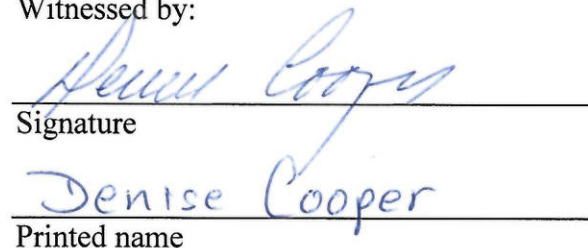 Witnessed by:
Denise Cooper
Signature
Denise Cooper
Printed name